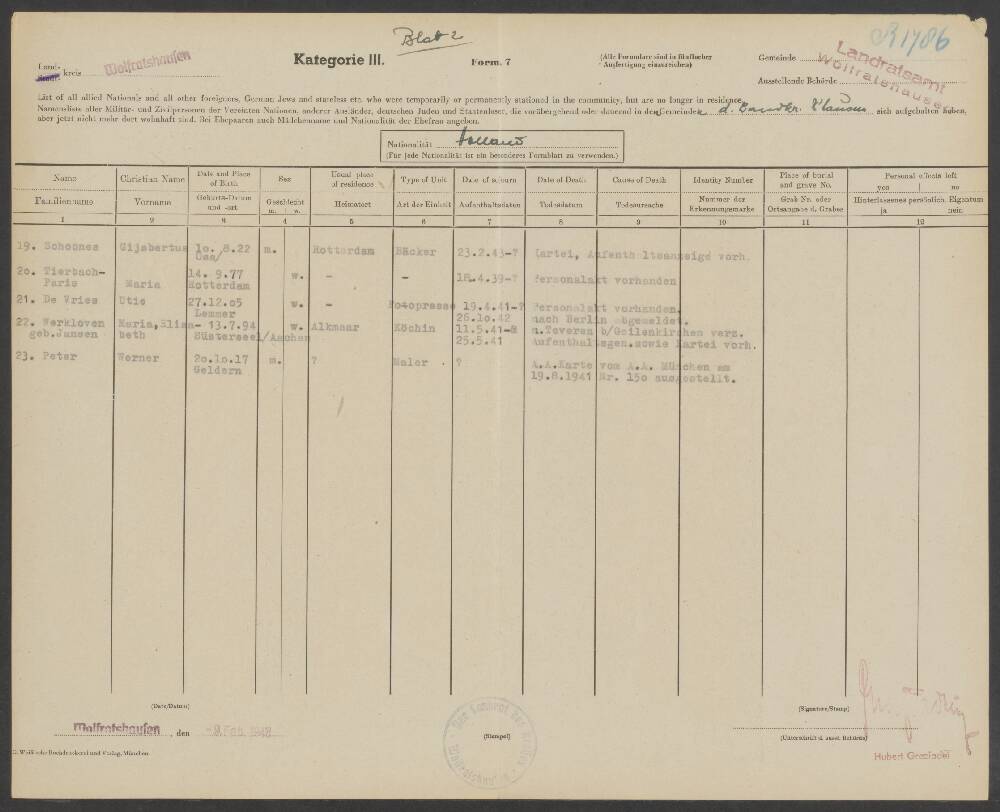 Blatt 2
R 1786
Land-
Stadt- kreis Wolfratshausen
Kategorie III.
Form. 7
(Alle Formulare sind in fünffacher
Ausfertigung einzureichen)
Gemeinde
Landratsamt
Wolfratshausen
Ausstellende Behörde
List of all allied Nationals and all other foreigners, German Jews and stateless etc. who were temporarily or permanently stationed in the community, but are no longer in residence.
Namensliste aller Militär- und Zivilpersonen der Vereinten Nationen, anderer Ausländer, deutschen Juden und Staatenloser, die vorübergehend oder dauernd in der Gemeinde d. Landkr. sich aufgehalten haben,
aber jetzt nicht mehr dort wohnhaft sind. Bei Ehepaaren auch Mädchenname und Nationalität der Ehefrau angeben.
Nationalität Holland
(Für jede Nationalität ist ein besonderes Formblatt zu verwenden.)
Name Christian Name Date and Place of Birth Sex Usual place of residence Type of Unit Date of sojourn Date of Death Cause of Death Identity Number Place of burial and grave No. Personal effects left yes no
Familienname Vorname Geburts-Datum und -ort Geschlecht m. w. Heimatort Art der Einheit Aufenthaltsdaten Todesdatum Todesursache Nummer der Erkennungsmarke Grab Nr. oder Ortsangabe d. Grabes Hinterlassenes persönlich. Eigentum ja nein
1 2 3 4 5 6 7 8 9 10 11 12
19. Schoones Gijsbertus 10. 8.22 m. Rotterdam Bäcker 23.2.43-? Kartei, Aufenthaltsanzeige vorh.
Oss/
20. Tierbach- 14. 9.77 w. - - 18.4.39-? Personalakt vorhanden
Paris Maria Rotterdam
21. De Vries Utie 27.12.05 w. - Fotopresse 19.4.41-? Personalakt vorhanden,
Lemmer 26.10.42 nach Berlin abgemeldet.
22. Werkloven Maria, Elisa- 13.7.94 w. Alkmaar Köchin 11.5.41-& n.Teveren b/Geilenkirchen verz.
geb.Jansen beth Süsterseel/Aachen 25.5.41 Aufenthaltsgen.sowie Kartei vorh.
23. Peter Werner 20.10.17 m. ? Maler ? A.A.Karte vom A.A. München am
Geldern 19.8.1941 Nr. 150 ausgestellt.
(Date/Datum)
Wolfratshausen, den -9. Feb. 1948
(Stempel)
(Signature/Stamp)
(Unterschrift d. ausst. Behörde)
Hubert Grazindel
C. Wolf'sche Buchdruckerei und Verlag, München